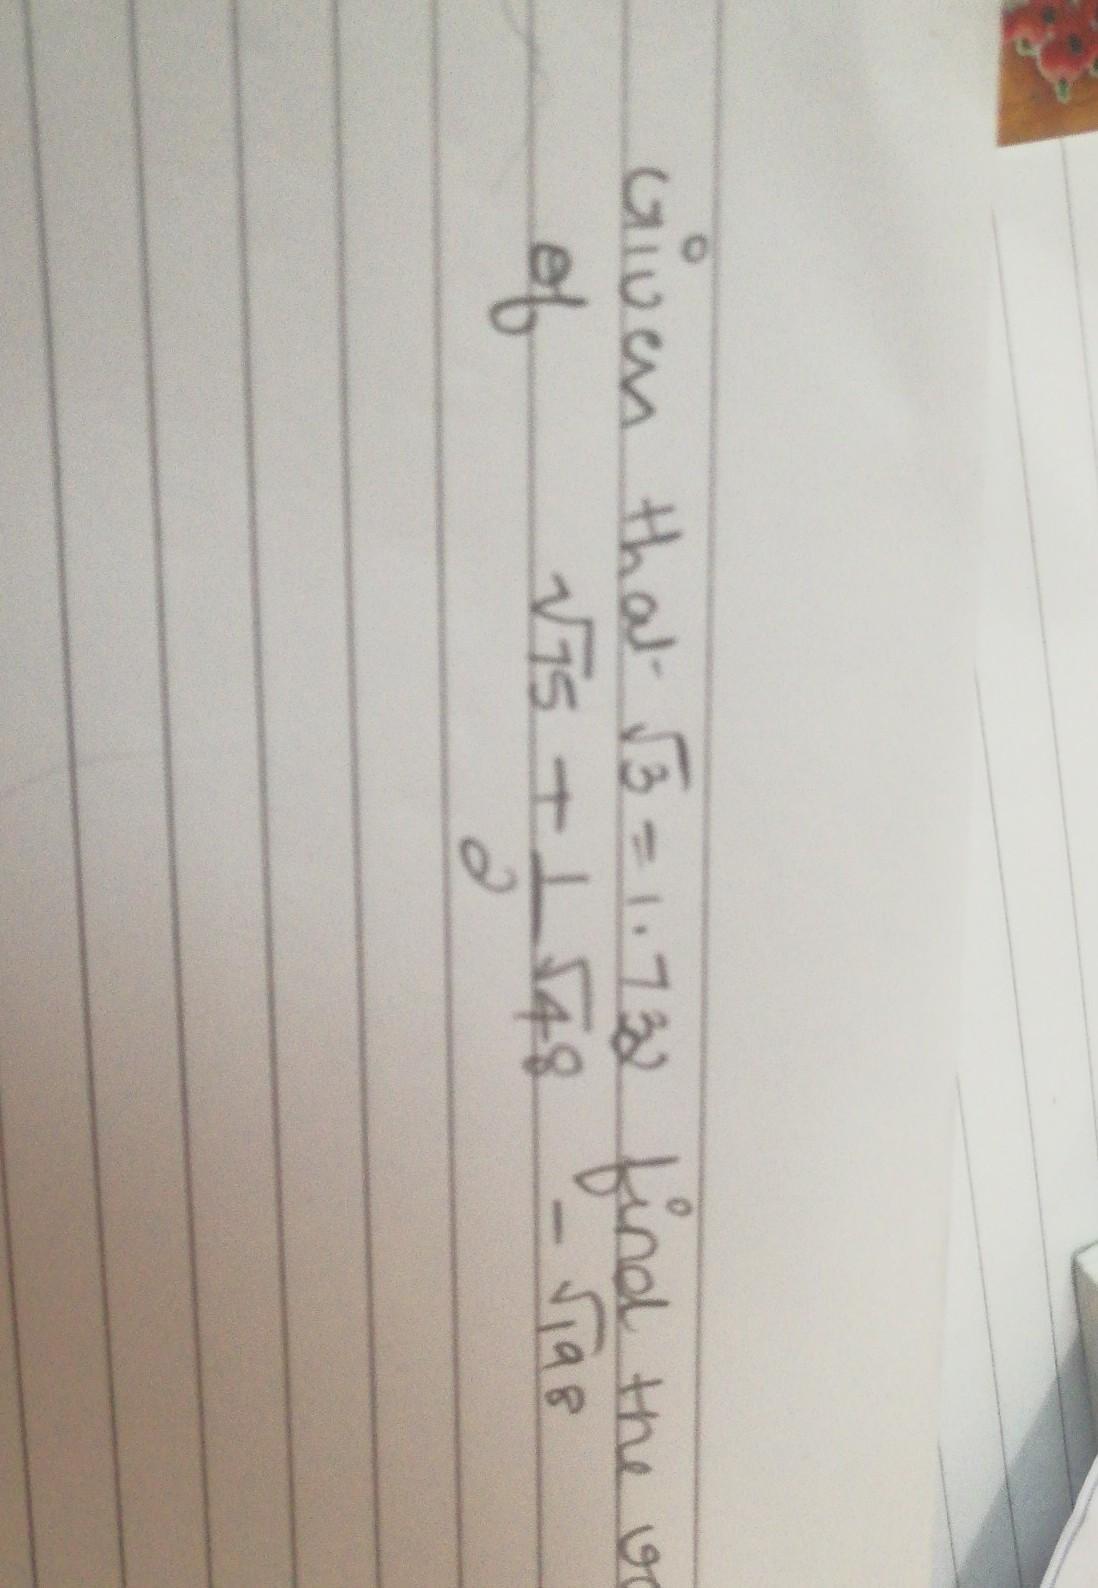 Given that √3 = 1.732 find the
of √75 + 1/2 √48 - √198